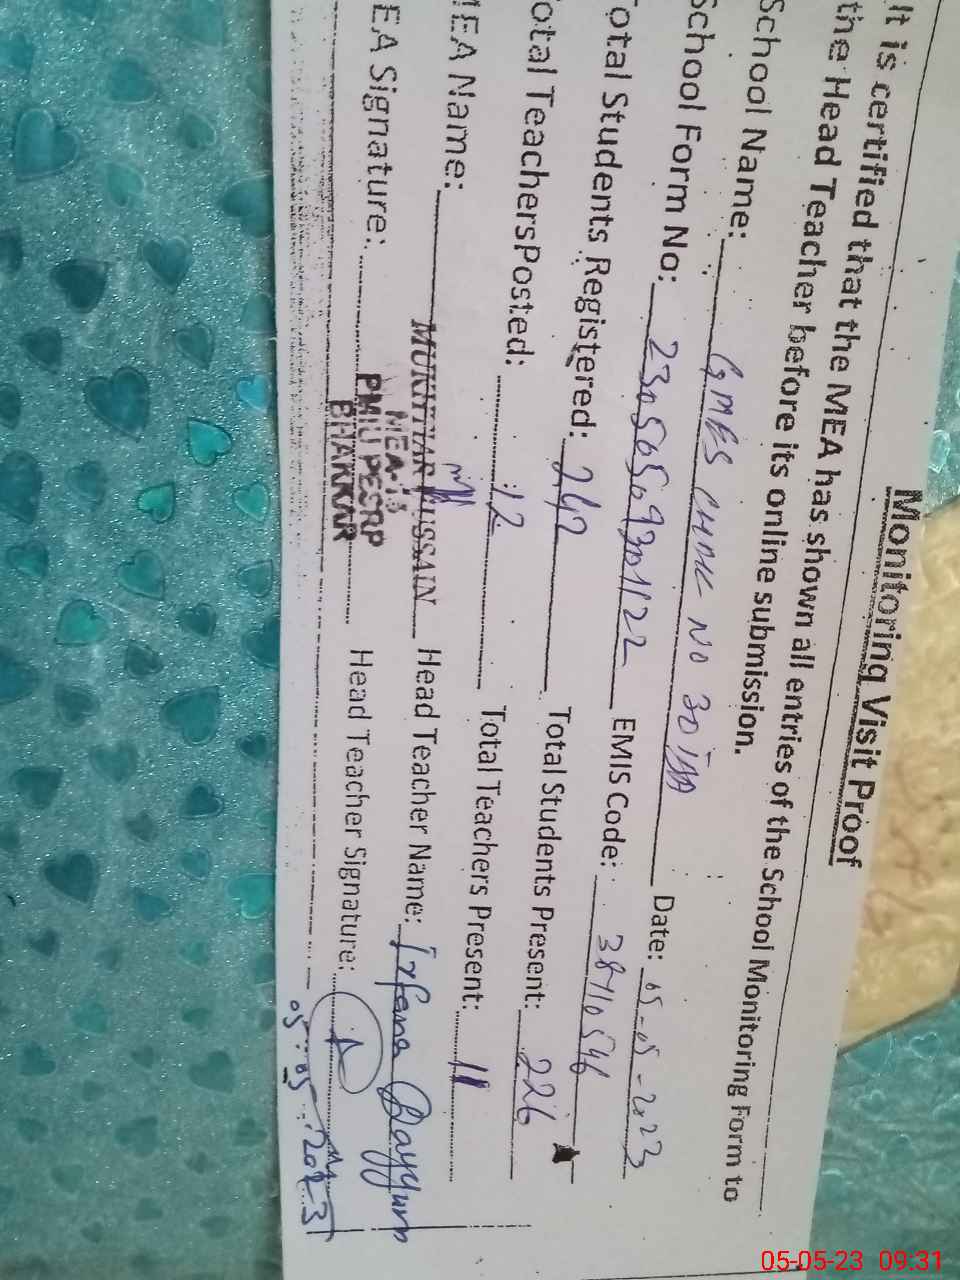 Monitoring Visit Proof
It is certified that the MEA has shown all entries of the School Monitoring Form to
the Head Teacher before its online submission.
School Name: GMES CHAK NO 30/ Date: 05-05-2023
School Form No: 23050509301122 EMIS Code: 38410546
Total Students Registered: 242 Total Students Present: 226
Total TeachersPosted: 12 Total Teachers Present: 11
MEA Name: MUKHTAR HUSSAIN Head Teacher Name: Irfana Qayyum
EA Signature: MEA-13 Head Teacher Signature:
PMIU PESRP
BHAKKAR
05-05-2023
05-05-23 09:31